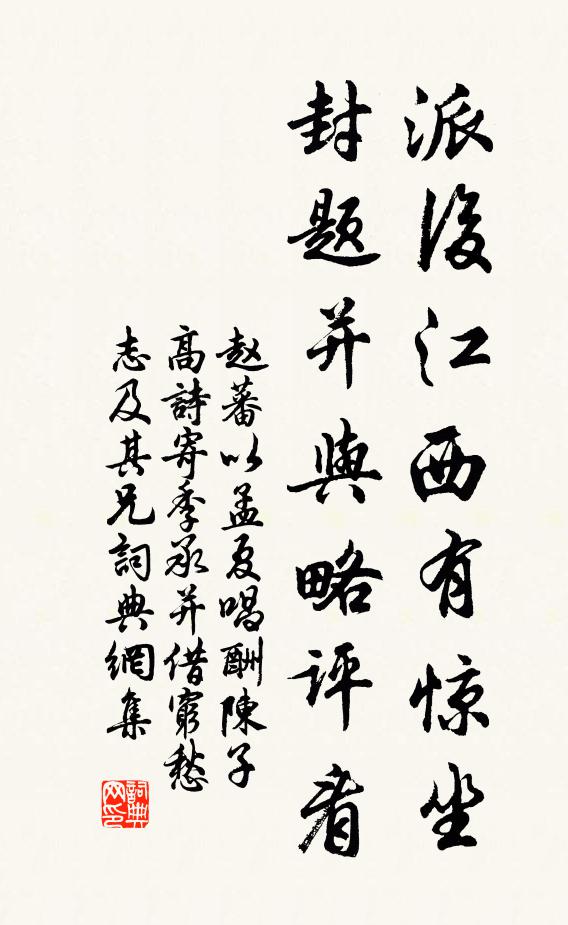 派後江西有惊坐
封题并與略评看
赵蕃以孟夏唱酬陳子
高詩寄季承并借窮愁
志及其兄詞典網集
詞典
网印